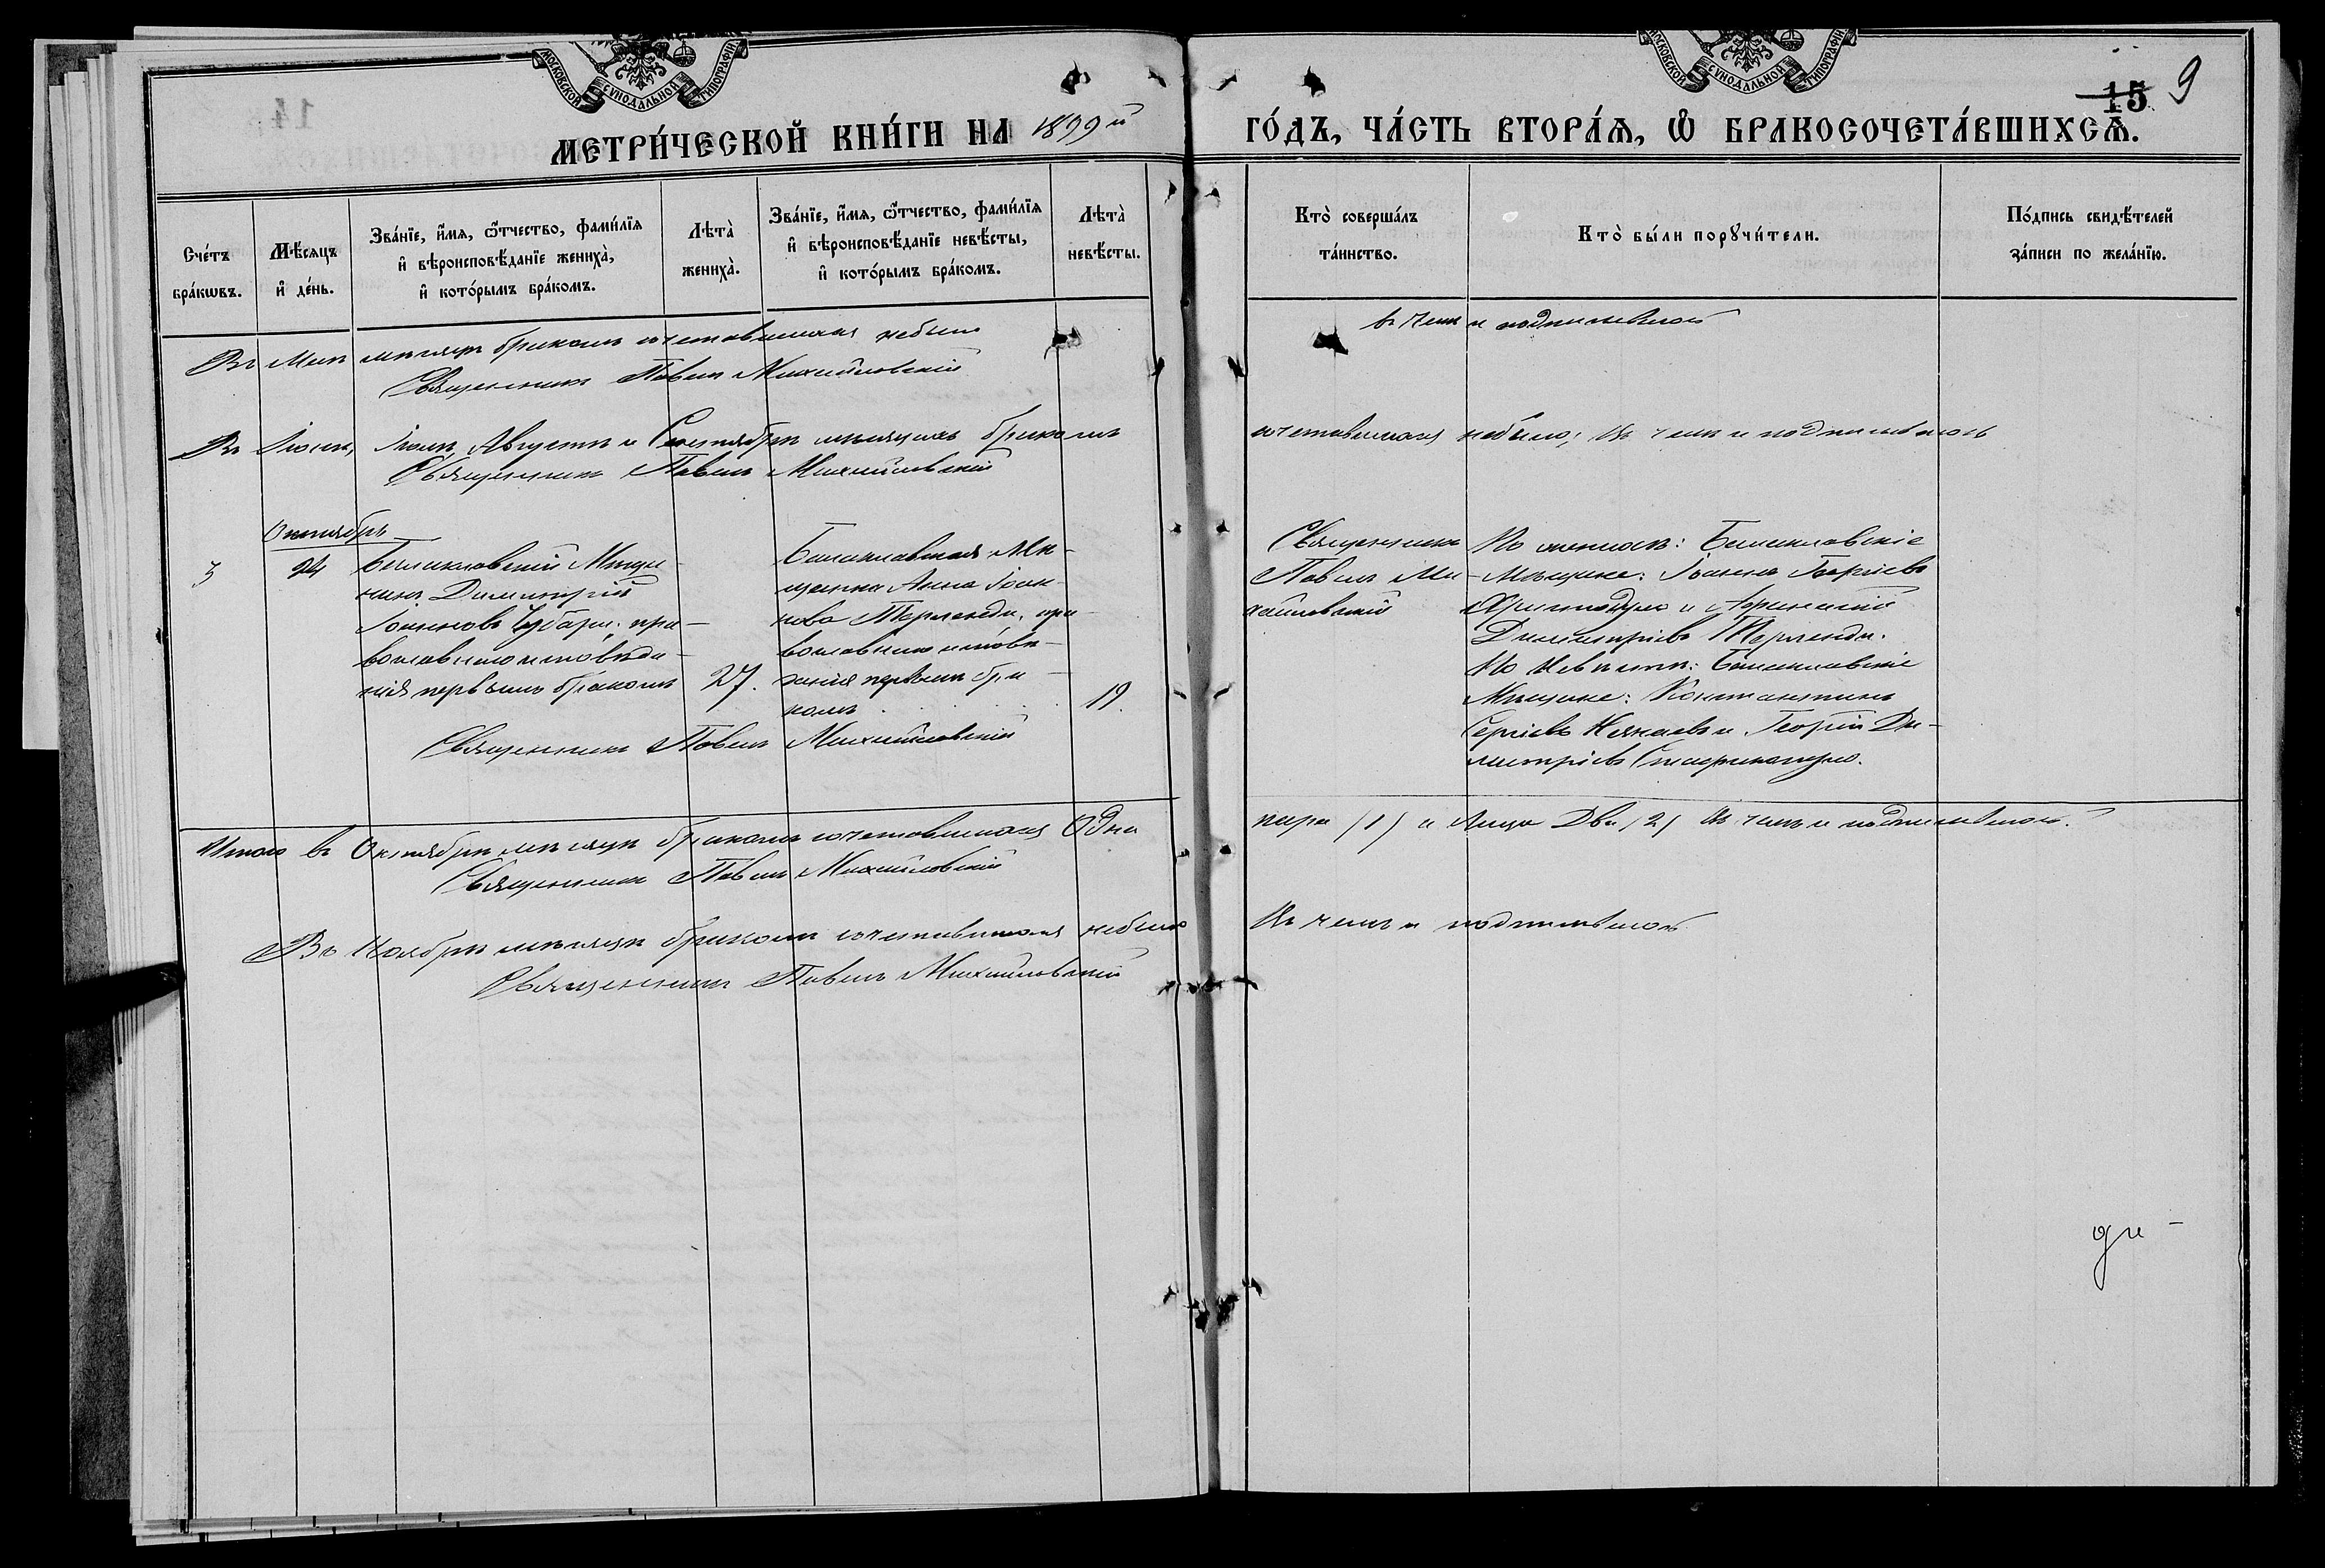 МОСКОВСКОЙ СѴНОДАЛЬНОЙ ТИПОГРАФІИ
МОСКОВСКОЙ СѴНОДАЛЬНОЙ ТИПОГРАФІИ
15 9
МЕТРИ́ЧЕСКОЙ КНИ́ГИ НА 1899 й ГО́ДЪ, ЧА́СТЬ ВТОРА́Я, Ѡ҆ БРАКОСОЧЕТА́ВШИХСЯ.
Сче́тъ бра́кѡвъ.
Мѣ́сяцъ и҆ де́нь.
Зва́нїе, и҆́мя, ѻ҆́тчество, фами́лїя и҆ вѣроисповѣ́данїе жениха̀, и҆ кото́рымъ бра́комъ.
Лѣта̀ жениха̀.
Зва́нїе, и҆́мя, ѻ҆́тчество, фами́лїя и҆ вѣроисповѣ́данїе невѣ́сты, и҆ кото́рымъ бра́комъ.
Лѣта̀ невѣ́сты.
Кто̀ соверша́лъ та́инство.
Кто̀ бы́ли порꙋчи́тели.
По́дпись свидѣ́телей за́писи по жела́нїю.
Въ Маѣ мѣсяцѣ бракомъ сочетавшихся небыло въ чемъ и подписываюсь
Священникъ Павелъ Михайловскій
Въ Іюнѣ, Іюлѣ, Августѣ и Сентябрѣ мѣсяцахъ бракомъ сочетавшихся небыло; въ чемъ и подписываюсь
Священникъ Павелъ Михайловскій
Октябрь
3
24
Балаклавскій Мѣща-
нинъ Димитрій
Іоанновъ Чубаръ, пра-
вославнаго исповѣда-
нія первымъ бракомъ
27.
Балаклавская Мѣ-
щанка Анна Іоан-
нова Терленди, пра-
вославнаго исповѣ-
данія первымъ бра-
комъ
19.
Священникъ
Павелъ Ми-
хайловскій
По женихѣ: Балаклавскіе
Мѣщане: Іоаннъ Георгіевъ
Христодуло и Афанасій
Димитріевъ Терленди.
По Невѣстѣ: Балаклавскіе
Мѣщане: Константинъ
Сергіевъ и Георгій Ди-
митріевъ
Священникъ Павелъ Михайловскій
Итого въ Октябрѣ мѣсяцѣ бракомъ сочетавшихся Одна пара (1) и лица Два (2) въ чемъ и подписываюсь.
Священникъ Павелъ Михайловскій
Въ Ноябрѣ мѣсяцѣ бракомъ сочетавшихся небыло въ чемъ и подписываюсь
Священникъ Павелъ Михайловскій